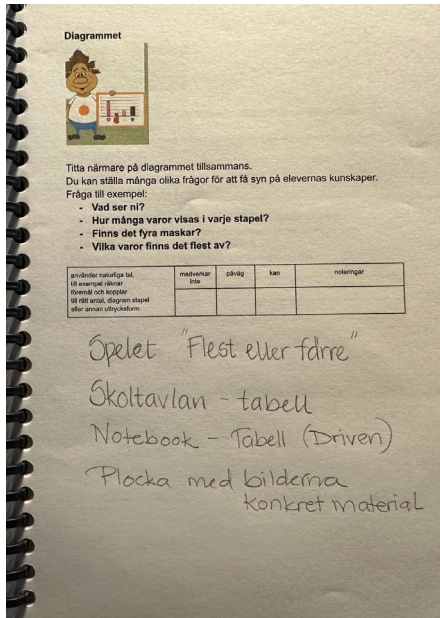 Diagrammet
Titta närmare på diagrammet tillsammans.
Du kan ställa många olika frågor för att få syn på elevernas kunskaper.
Fråga till exempel:
- Vad ser ni?
- Hur många varor visas i varje stapel?
- Finns det fyra maskar?
- Vilka varor finns det flest av?
använder naturliga tal,
till exempel räknar
föremål och kopplar
till rätt antal, diagram stapel
eller annan uttrycksform
medverkar
inte
påväg
kan
noteringar
Spelet "Flest eller färre"
Skoltavlan - tabell
Notebook - Tabell (Driven)
Plocka med bilderna
konkret material